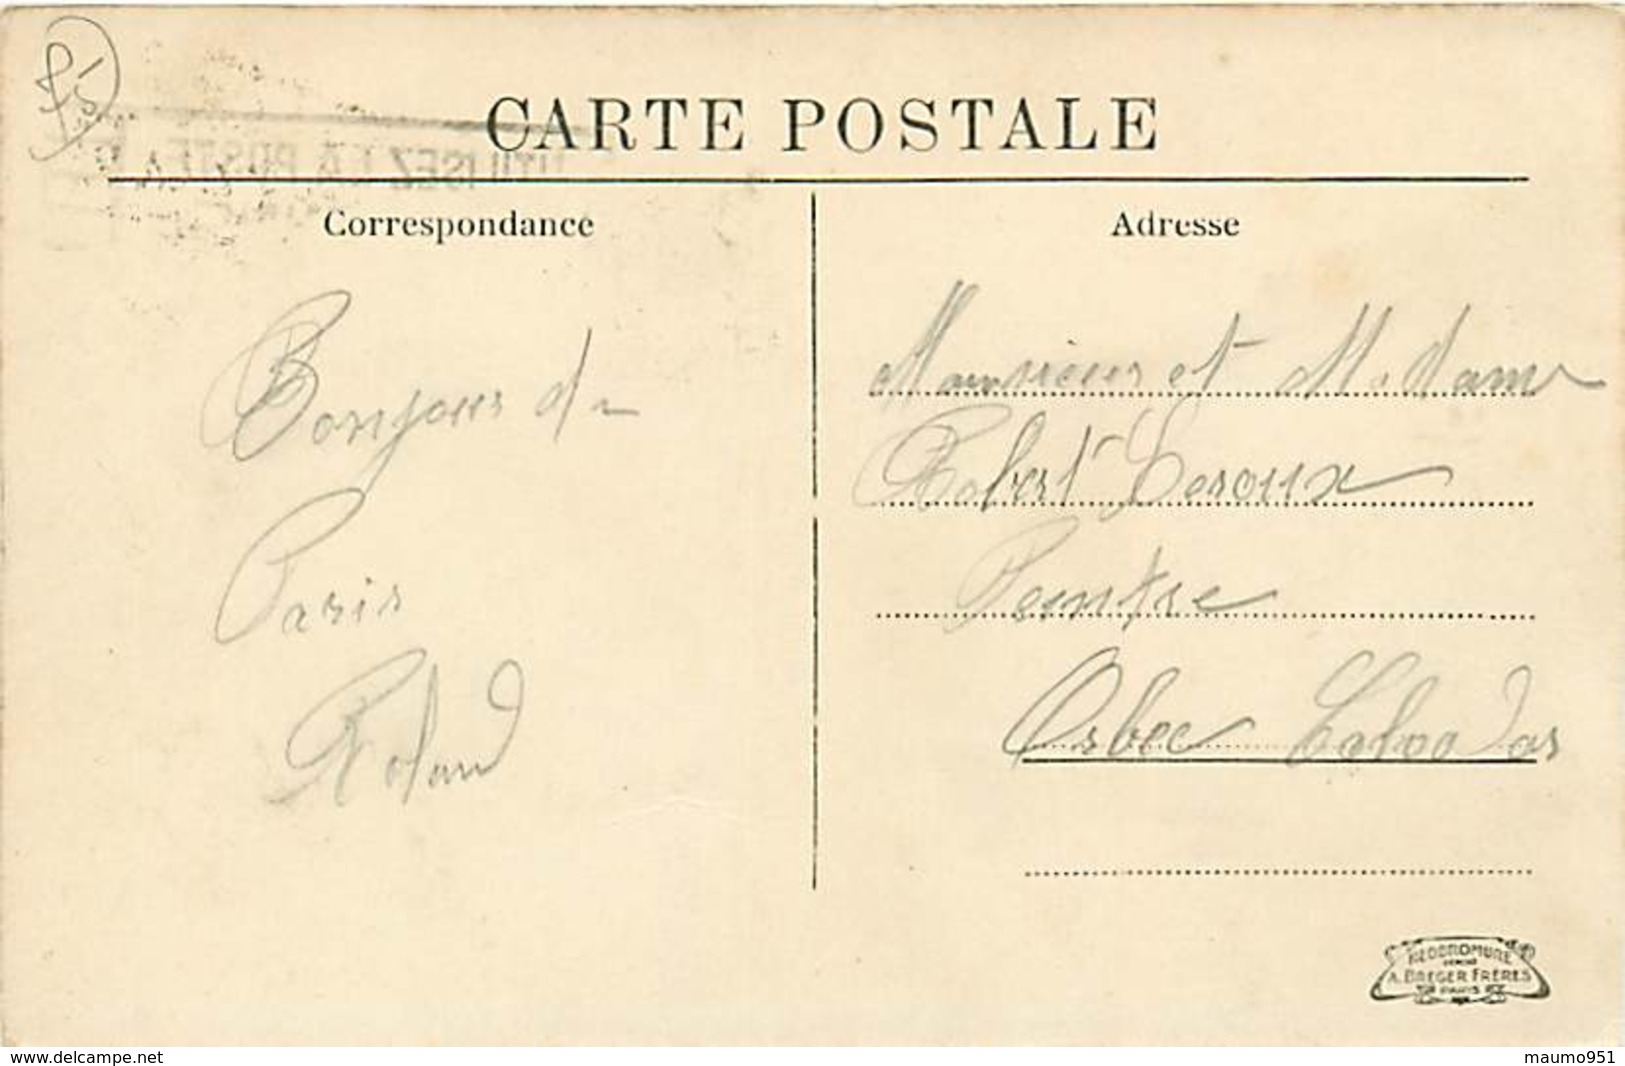 CARTE POSTALE
UTILISEZ LA POSTE
Correspondance
Adresse
Bonjour de
Paris
Roland
Monsieur et Madame
Robert Leroux
Peintre
Orbec Calvados
NEOBROMURE
A. BREGER FRÈRES
PARIS
www.delcampe.net
maumo951